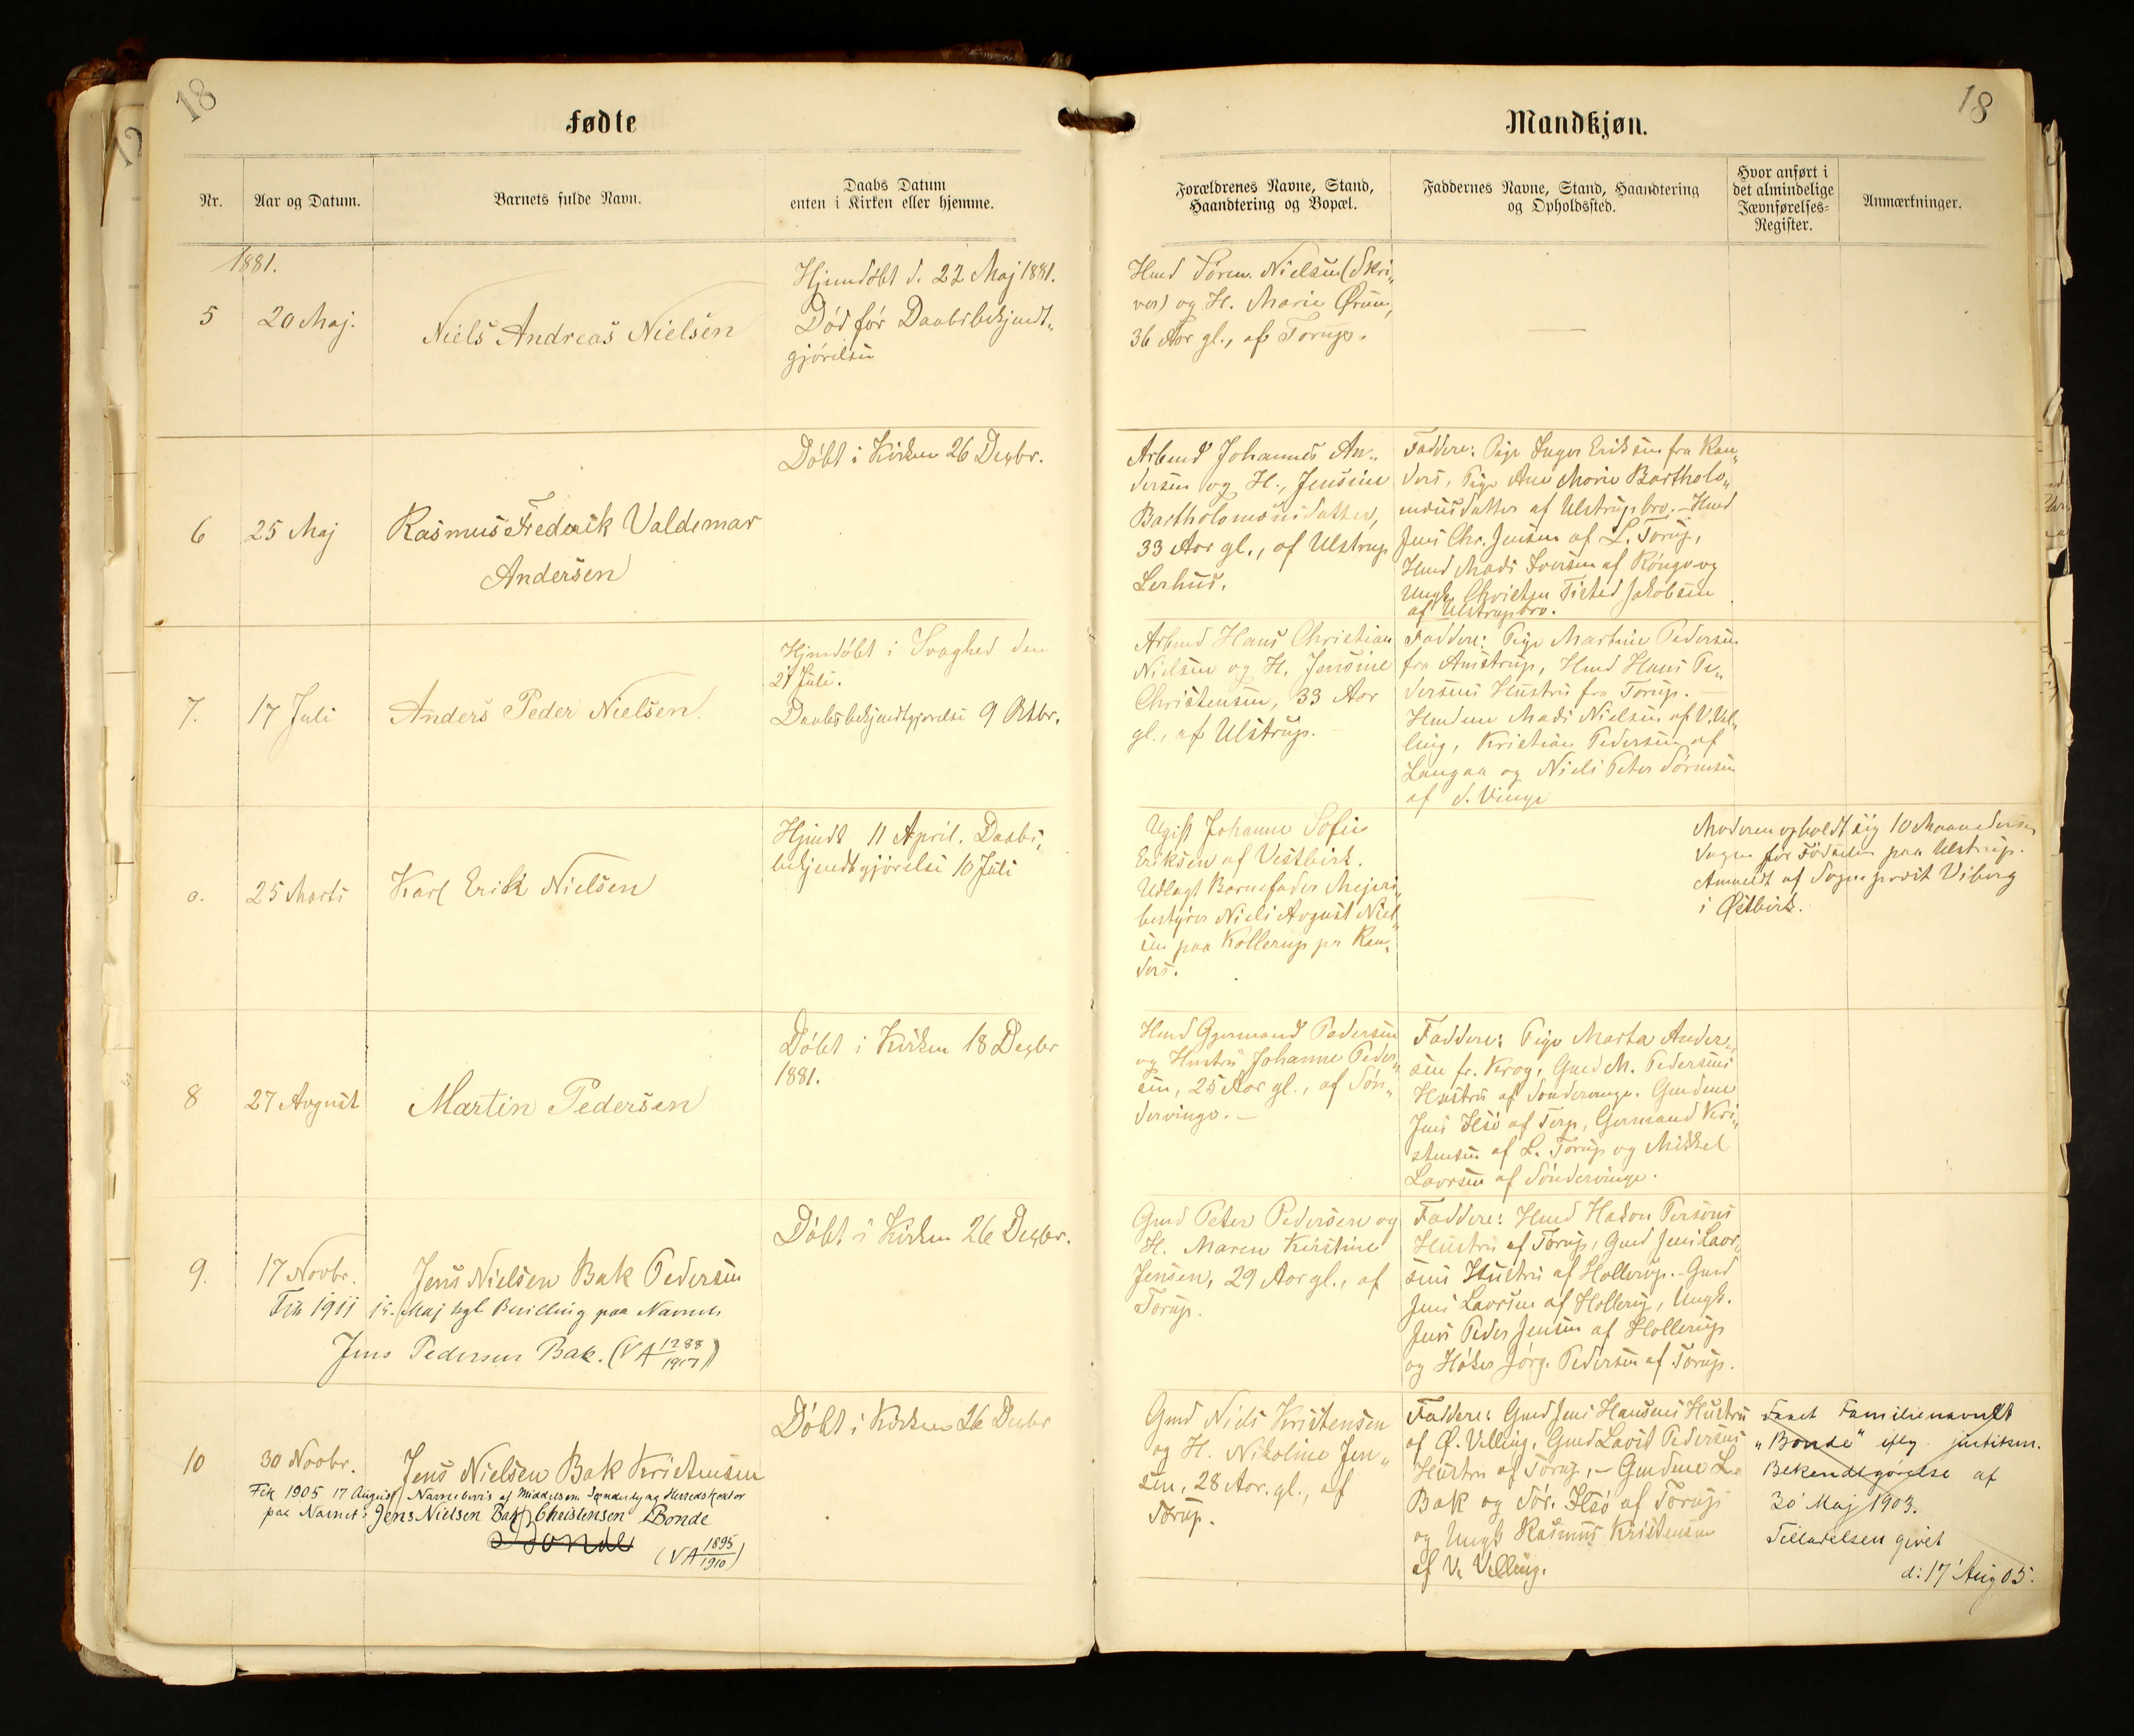 18
Fødte
Nr.
Aar og Datum.
Barnets fulde Navn.
Daabs Datum
enten i Kirken eller hjemme.
1881.
5
20 Maj.
Niels Andreas Nielsen
Hjemdøbt d. 22 Maj 1881.
Død før Daabsbekjendt„
gjørelsen
6
25 Maj
Rasmus Frederik Valdemar
Andersen
Døbt i Kirken 26 Decbr.
7.
17 Juli
Anders Peder Nielsen.
Hjemdøbt i Svaghed den
21 Juli.
Daabsbekjendtgjørelse 9 Oktbr.
a.
25 Marts
Karl Erik Nielsen
Hjmdt 11 April. Daabs„
bekjendtgjørelse 10 Juli
8
27 Avgust
Martin Pedersen
Døbt i Kirken 18 Decbr
1881.
9.
17 Novbr.
Jens Nielsen Bak Pedersen
Døbt i Kirken 26 Decbr.
Fik 1911 15. Maj kgl. Bevilling paa Navnet
Jens Pedersen Bak. (VA 1288/1917)
10
30 Novbr.
Jens Nielsen Bak Kristensen
Døbt i Kirken 26 Decbr
Fik 1905 17 August Navnebevis af Middelsom Sønderlyng Herredskontor
paa Navnet: Jens Nielsen Bak Christensen Bonde
Bonde
(VA 1895/1910)
18
Mandkjøn.
Forældrenes Navne, Stand,
Haandtering og Bopæl.
Faddernes Navne, Stand, Haandtering
og Opholdssted.
Hvor anført i
det almindelige
Jævnførelses=
Register.
Anmærkninger.
Hmd Søren Nielsen (Skri„
ver) og H. Marie Ørum,
36 Aar gl., af Torup.
Arbmd Johannes An„
dersen og H., Jensine
Bartholomæusdatter,
33 Aar gl., af Ulstrup
Lerhus.
Faddere: Pige Inger Eriksen fra Ran„
ders, Pige Ane Marie Bartholo„
mæusdatter af Ulstrupbro. - Hmd
Jens Chr. Jensen af L. Torup,
Hmd Mads Iversen af Rønge og
Ungk. Christen Tisted Jakobsen
af Ulstrupbro.
Arbmd Hans Christian
Nielsen og H. Jensine
Christensen, 33 Aar
gl., af Ulstrup.
Faddere: Pige Martine Pedersen
fra Amstrup, Hmd Hans Pe„
dersens Hustru fra Torup. -
Hmdene Mads Nielsen af V. Vel„
ling, Kristian Pedersen af
Langaa og Niels Peter Sørensen
af S. Vinge
Ugift Johanne Sofie
Eriksen af Vestbirk.
Udlagt Barnefader Mejeri„
bestyrer Niels Avgust Niel„
sen paa Kollerup pr Ran„
ders.
Moderen opholdt sig 10 Maanedersn
dagen før Fødselen paa Ulstrup.
Anmeldt af Sogneprovst Viborg
i Østbirk.
Hmd Gjermand Pedersen
og Hustru Johanne Peder„
sen, 25 Aar gl., af Søn„
dervinge. -
Faddere: Pige Marta Ander„
sen fr. Krog, Gmd M. Pedersens
Hustru af Søndervinge. Gmdene
Jens Ilsø af Terp, Germand Kri„
stensen af L. Torup og Mikkel
Lavrsen af Søndervinge.
Gmd Peter Pedersen og
H. Maren Kirstine
Jensen, 29 Aar gl., af
Torup.
Faddere: Hmd Hakon Persons
Hustru af Torup, Gmd Jens Lavr„
sens Hustru af Hollerup. - Gmd
Jens Lavrsen af Hollerup, Ungk.
Jens Peder Jensen af Hollerup
og Høker Jørg. Pedersen af Torup.
Gmd Niels Kristensen
og H. Nikoline Jen„
sen, 28 Aar. gl., af
Torup.
Faddere: Gmd Jens Hansens Hustru
af Ø. Velling, Gmd Lavst Pedersens
Hustru af Torup, - Gmdene L.
Bak og Sør. Ilsø af Torup
og Ungk Rasmus Kristensen
af V. Velling.
Taget Familienavnet
„Bonde" iflg. justitsm.
Bekendtgørelse af
30' Maj 1903.
Tilladelsen givet
d: 17' Aug 05.